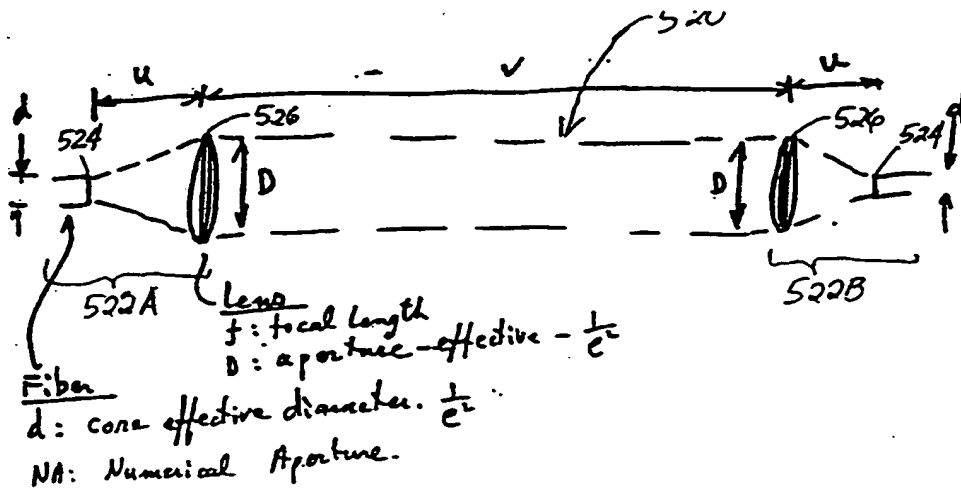 520
u
v
u
d
524
526
D
D
526
524
d
522A
522B
Lens
f: focal length
D: aperture - effective - 1/e²
Fiber
d: core effective diameter. 1/e²
NA: Numerical Aperture.